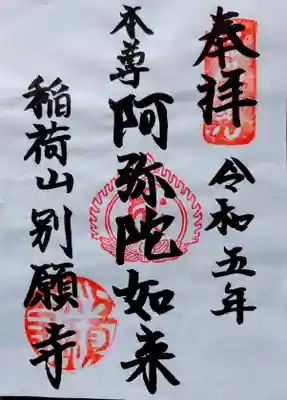 奉拝
令和五年
本尊
阿弥陀如来
稲荷山別願寺